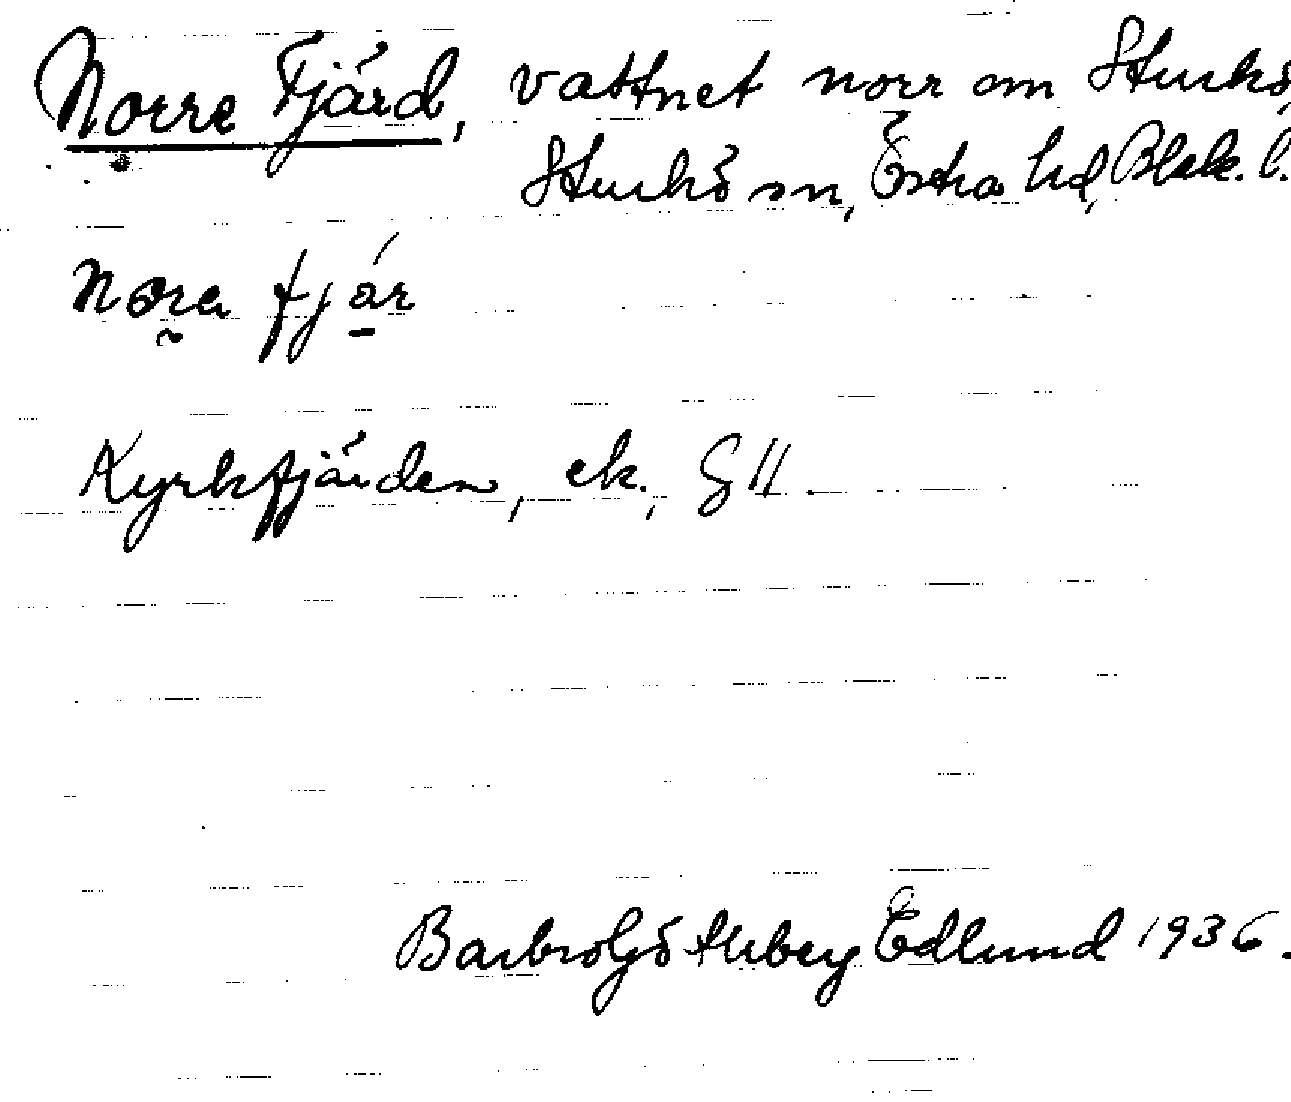 Norre Fjärd, vattnet norr om Sturkö,
Sturkö sn, Östra hd, Blek. l.
nora fjár
Kyrkfjärden, ek.,
Barbro Götherberg Edlund 1936.